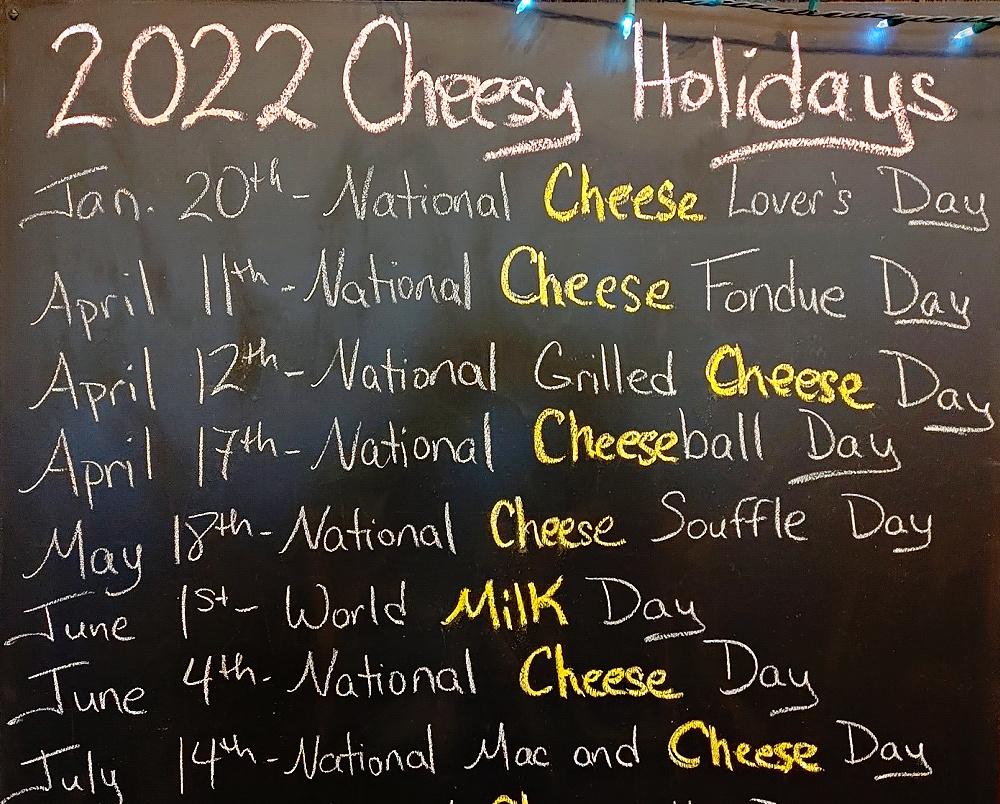 2022 Cheesy Holidays
Jan. 20th - National Cheese Lover's Day
April 11th - National Cheese Fondue Day
April 12th - National Grilled Cheese Day
April 17th - National Cheeseball Day
May 18th - National Cheese Souffle Day
June 1st - World Milk Day
June 4th - National Cheese Day
July 14th - National Mac and Cheese Day